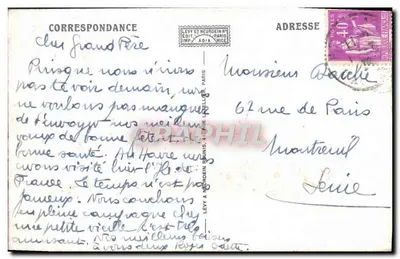 CORRESPONDANCE
ADRESSE
LÉVY ET NEURDEIN RÉUNIS
Cher Grand Père
Puisque nous n'irons
pas te voir demain, nous
ne voulons pas manquer
de t'envoyer nos meilleurs
vœux de bonne fête et de
bonne santé. Au Havre nous
avons visité hier l'Ile de
France. Le temps n'est pas
fameux. Nous couchons
en pleine campagne chez
une petite vieille c'est très
amusant. Nos meilleurs baisers
à vous deux
Monsieur
62 rue de Paris
Montreuil
Seine
40